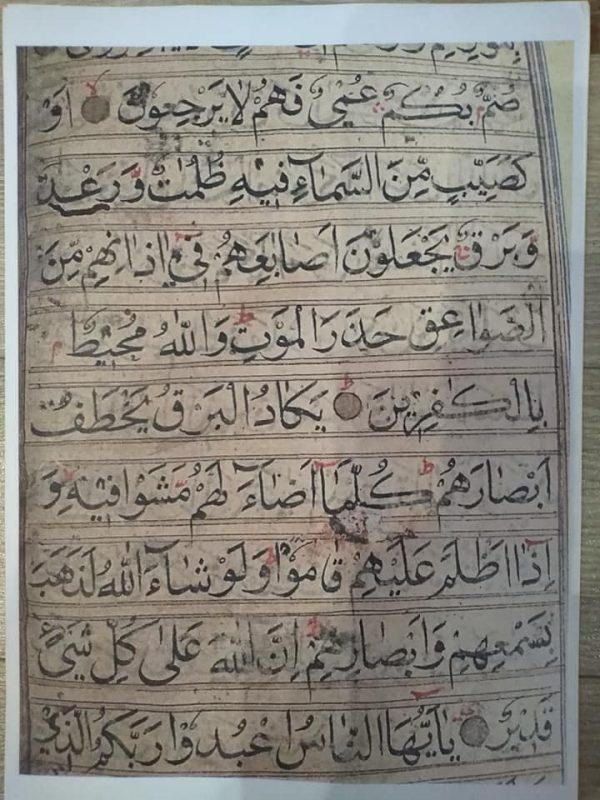 بِنُورِهِمْ
صُمٌّ بُكْمٌ عُمْيٌ فَهُمْ لَا يَرْجِعُونَ اَوْ
كَصَيِّبٍ مِّنَ السَّمَآءِ فِيْهِ ظُلُمٰتٌ وَّرَعْدٌ
وَّبَرْقٌ يَجْعَلُوْنَ اَصَابِعَهُمْ فِيْ اٰذَانِهِمْ مِنَ
الصَّوَاعِقِ حَذَرَ الْمَوْتِ وَاللّٰهُ مُحِيْطٌ
بِالْكٰفِرِيْنَ يَكَادُ الْبَرْقُ يَخْطَفُ
اَبْصَارَهُمْ كُلَّمَا اَضَآءَ لَهُمْ مَّشَوْا فِيْهِ وَ
اِذَا اَظْلَمَ عَلَيْهِمْ قَامُوْا وَلَوْ شَآءَ اللّٰهُ لَذَهَبَ
بِسَمْعِهِمْ وَاَبْصَارِهِمْ اِنَّ اللّٰهَ عَلٰى كُلِّ شَيْءٍ
قَدِيْرٌ يٰاَيُّهَا النَّاسُ اعْبُدُوْا رَبَّكُمُ الَّذِيْ